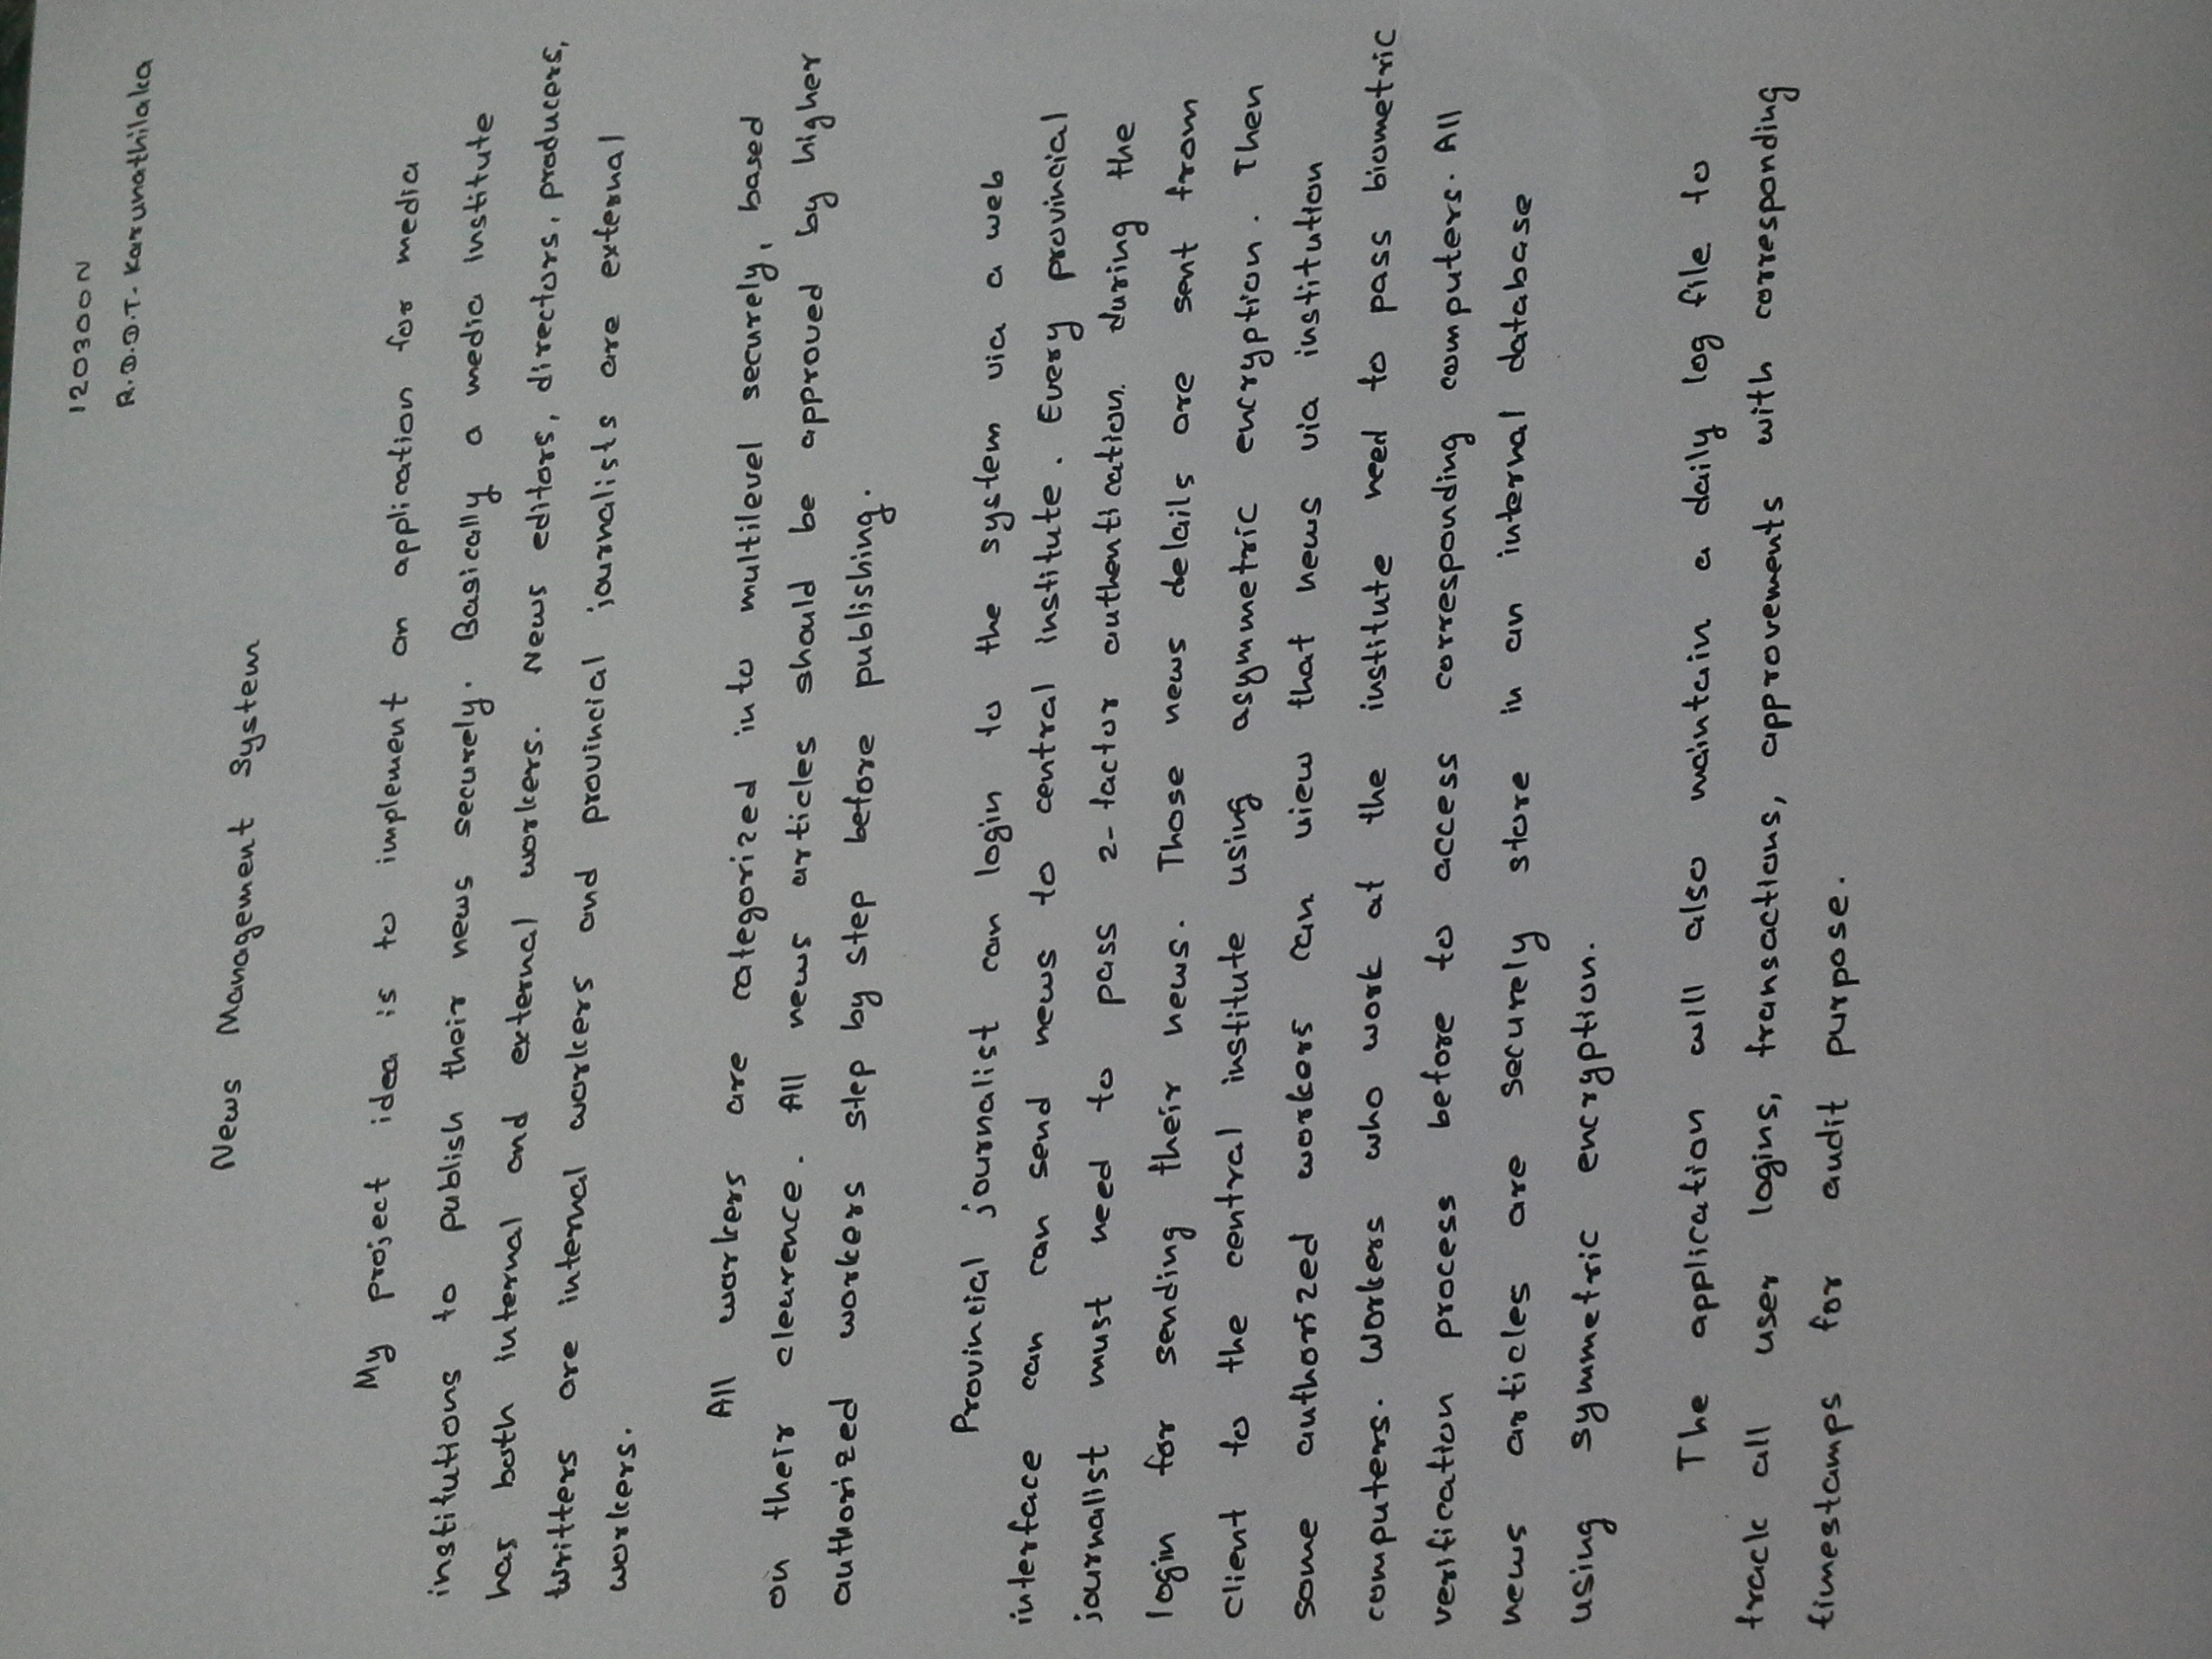 120300N
R.D.D.T. Karunathilaka
News Management System
My project idea is to implement an application for media
institutions to publish their news securely. Basically a media institute
has both internal and external workers. News editors, directors, producers,
writters are internal workers and provincial journalists are external
workers.
All workers are categorized into multilevel securely, based
on their clearence. All news articles should be approved by higher
authorized workers step by step before publishing.
Provincial journalist can login to the system via a web
interface can can send news to central institute. Every provincial
journalist must need to pass 2-factor authentication during the
login for sending their news. Those news details are sent from
client to the central institute using asymmetric encryption. Then
some authorized workers can view that news via institution
computers. Workers who work at the institute need to pass biometric
verification process before to access corresponding computers. All
news articles are securely store in an internal database
using symmetric encryption.
The application will also maintain a daily log file to
track all user logins, transactions, approvements with corresponding
timestamps for audit purpose.